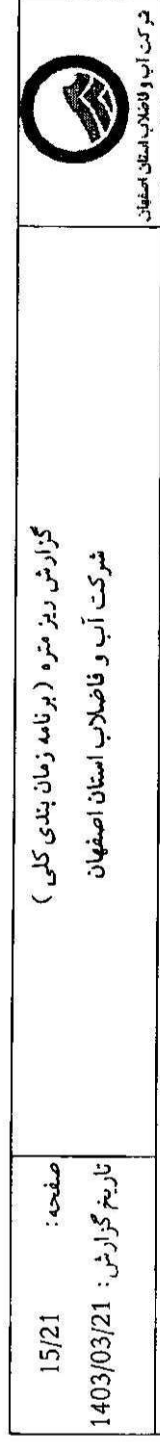 شرکت آب و فاضلاب استان اصفهان
گزارش ریز متره ( برنامه زمان بندی کلی )
شرکت آب و فاضلاب استان اصفهان
صفحه: 15/21
تاریخ گزارش: 1403/03/21